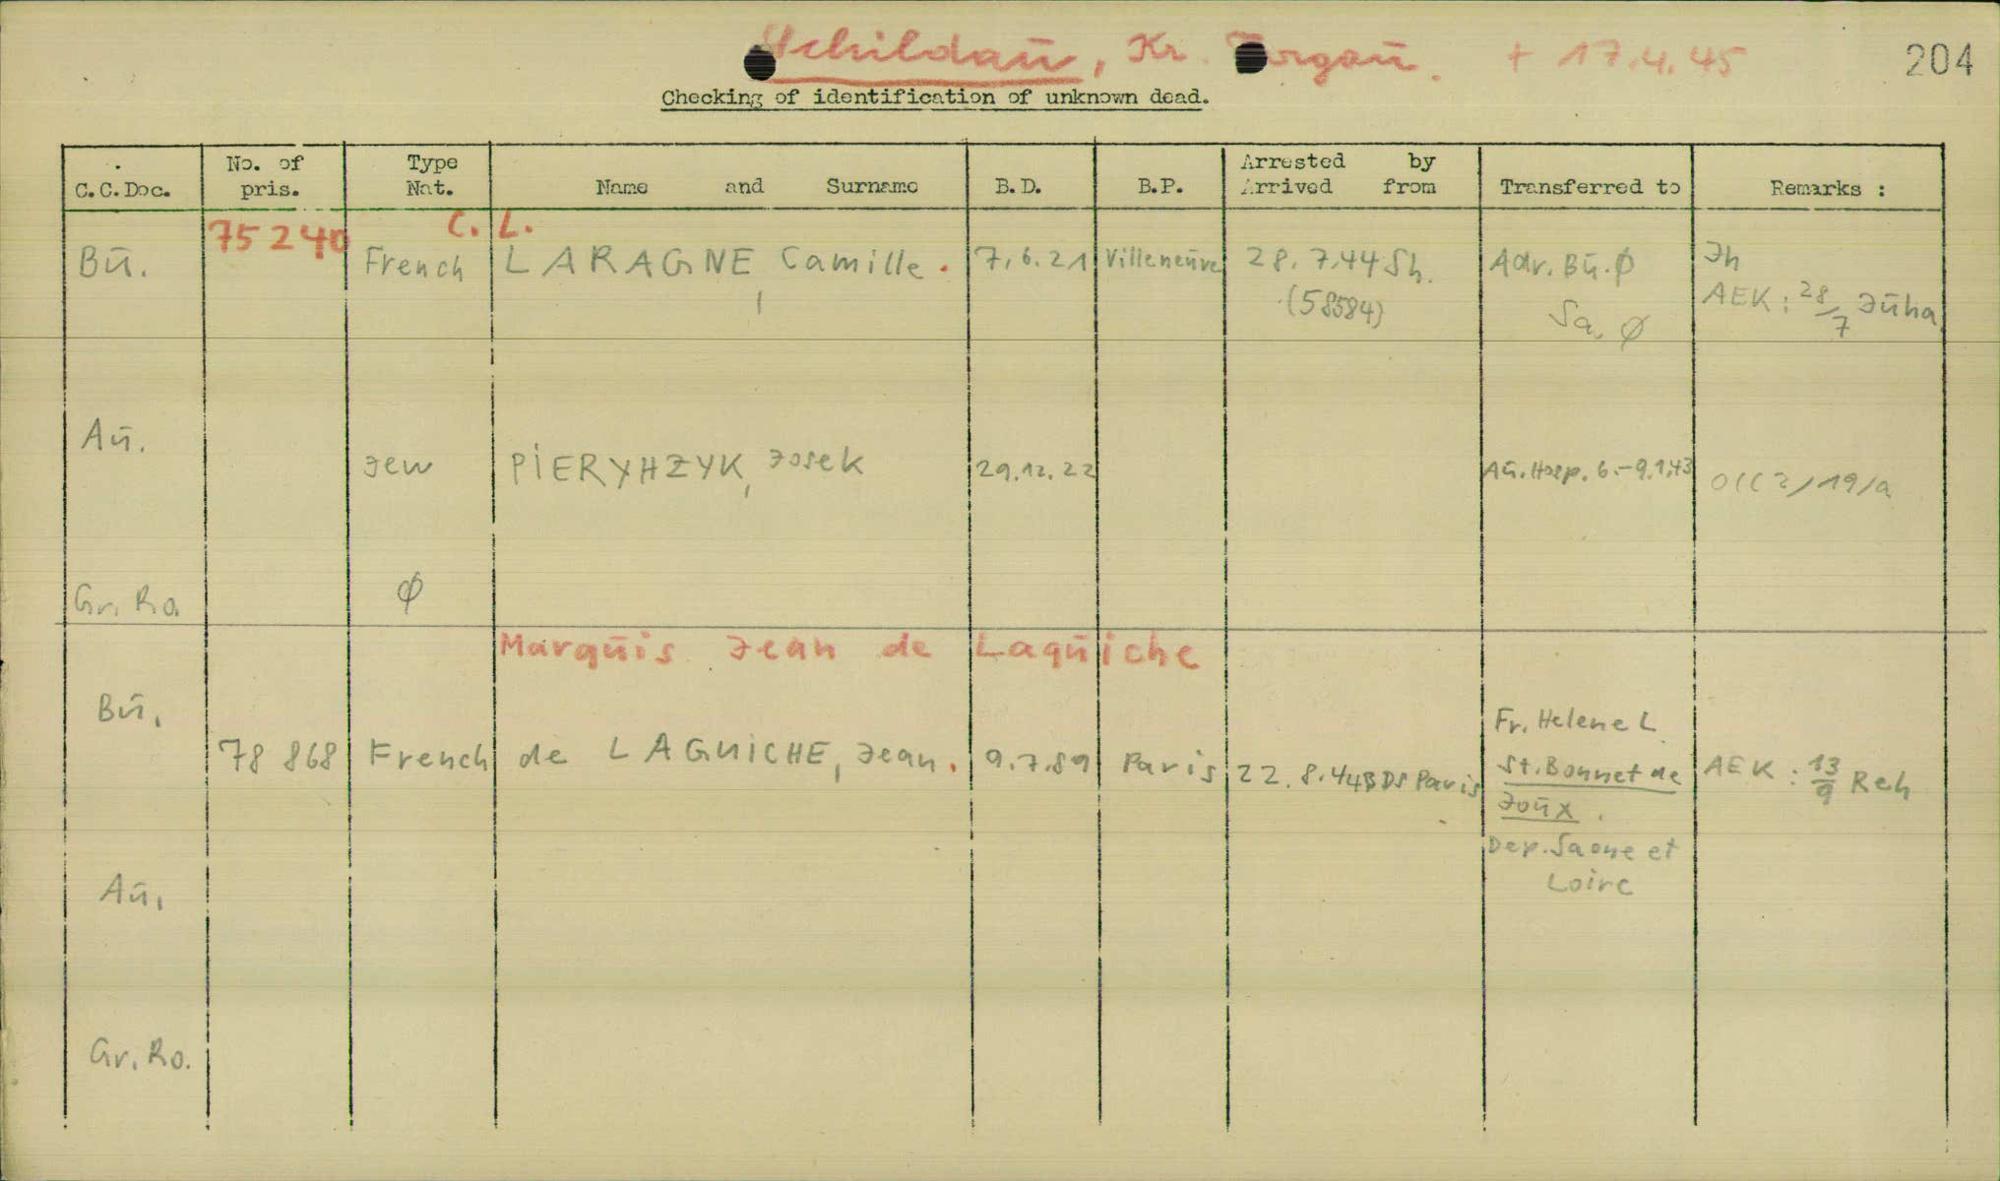 Schildau, Kr. Torgau. + 17.4.45
204
Checking of identification of unknown dead.
C.C.Doc. No. of pris. Type Nat. Name and Surname B.D. B.P. Arrested by Arrived from Transferred to Remarks :
75240 C. L.
Bū. French LARAGNE, Camille. 7.6.21 Villeneūve 28.7.44 Sh. Adr. Bū. Ø Jh
(58584) Sa. Ø AEK: 28/7 Jūha
Aū.
Jew PIERYHZYK, Josek 29.12.22 Aū. Hosp. 6.-9.1.43 OCC2/19/a
Gr. Ro. Ø
Marqūis Jean de Lagūiche
Bū. Fr. Helene L
78 868 French de LAGUICHE, Jean. 9.7.89 Paris 22.8.44 BDS Paris St. Bonnet de AEK: 13/9 Reh
Joūx.
Dep. Saone et
Loire
Aū.
Gr. Ro.